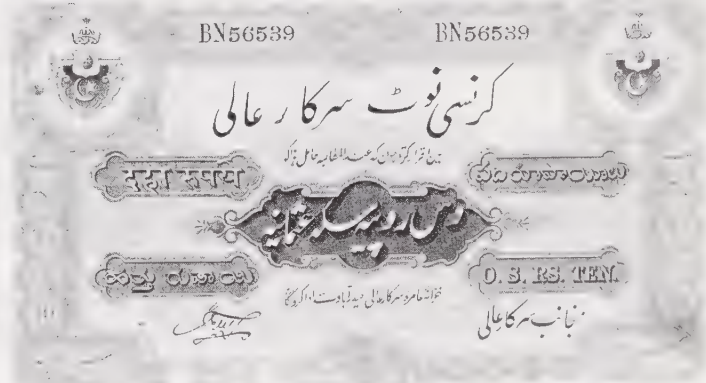 BN56539 BN56539
کرنسی نوٹ سرکار عالی
میں اقرار کرتا ہوں کہ عند المطالبہ حامل ہذا کو
दहा रुपये
పది రూపాయలు
دس روپیہ سکہ عثمانیہ
ಹತ್ತು ರೂಪಾಯಿ
O. S. RS. TEN.
خزانہ عامرہ سرکار عالی حیدرآباد سے ادا کرونگا
منجانب سرکار عالی